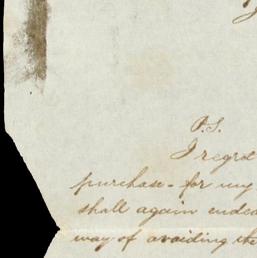 P.S.
I regre
purchase - for my
shall again endea
way of avoiding the